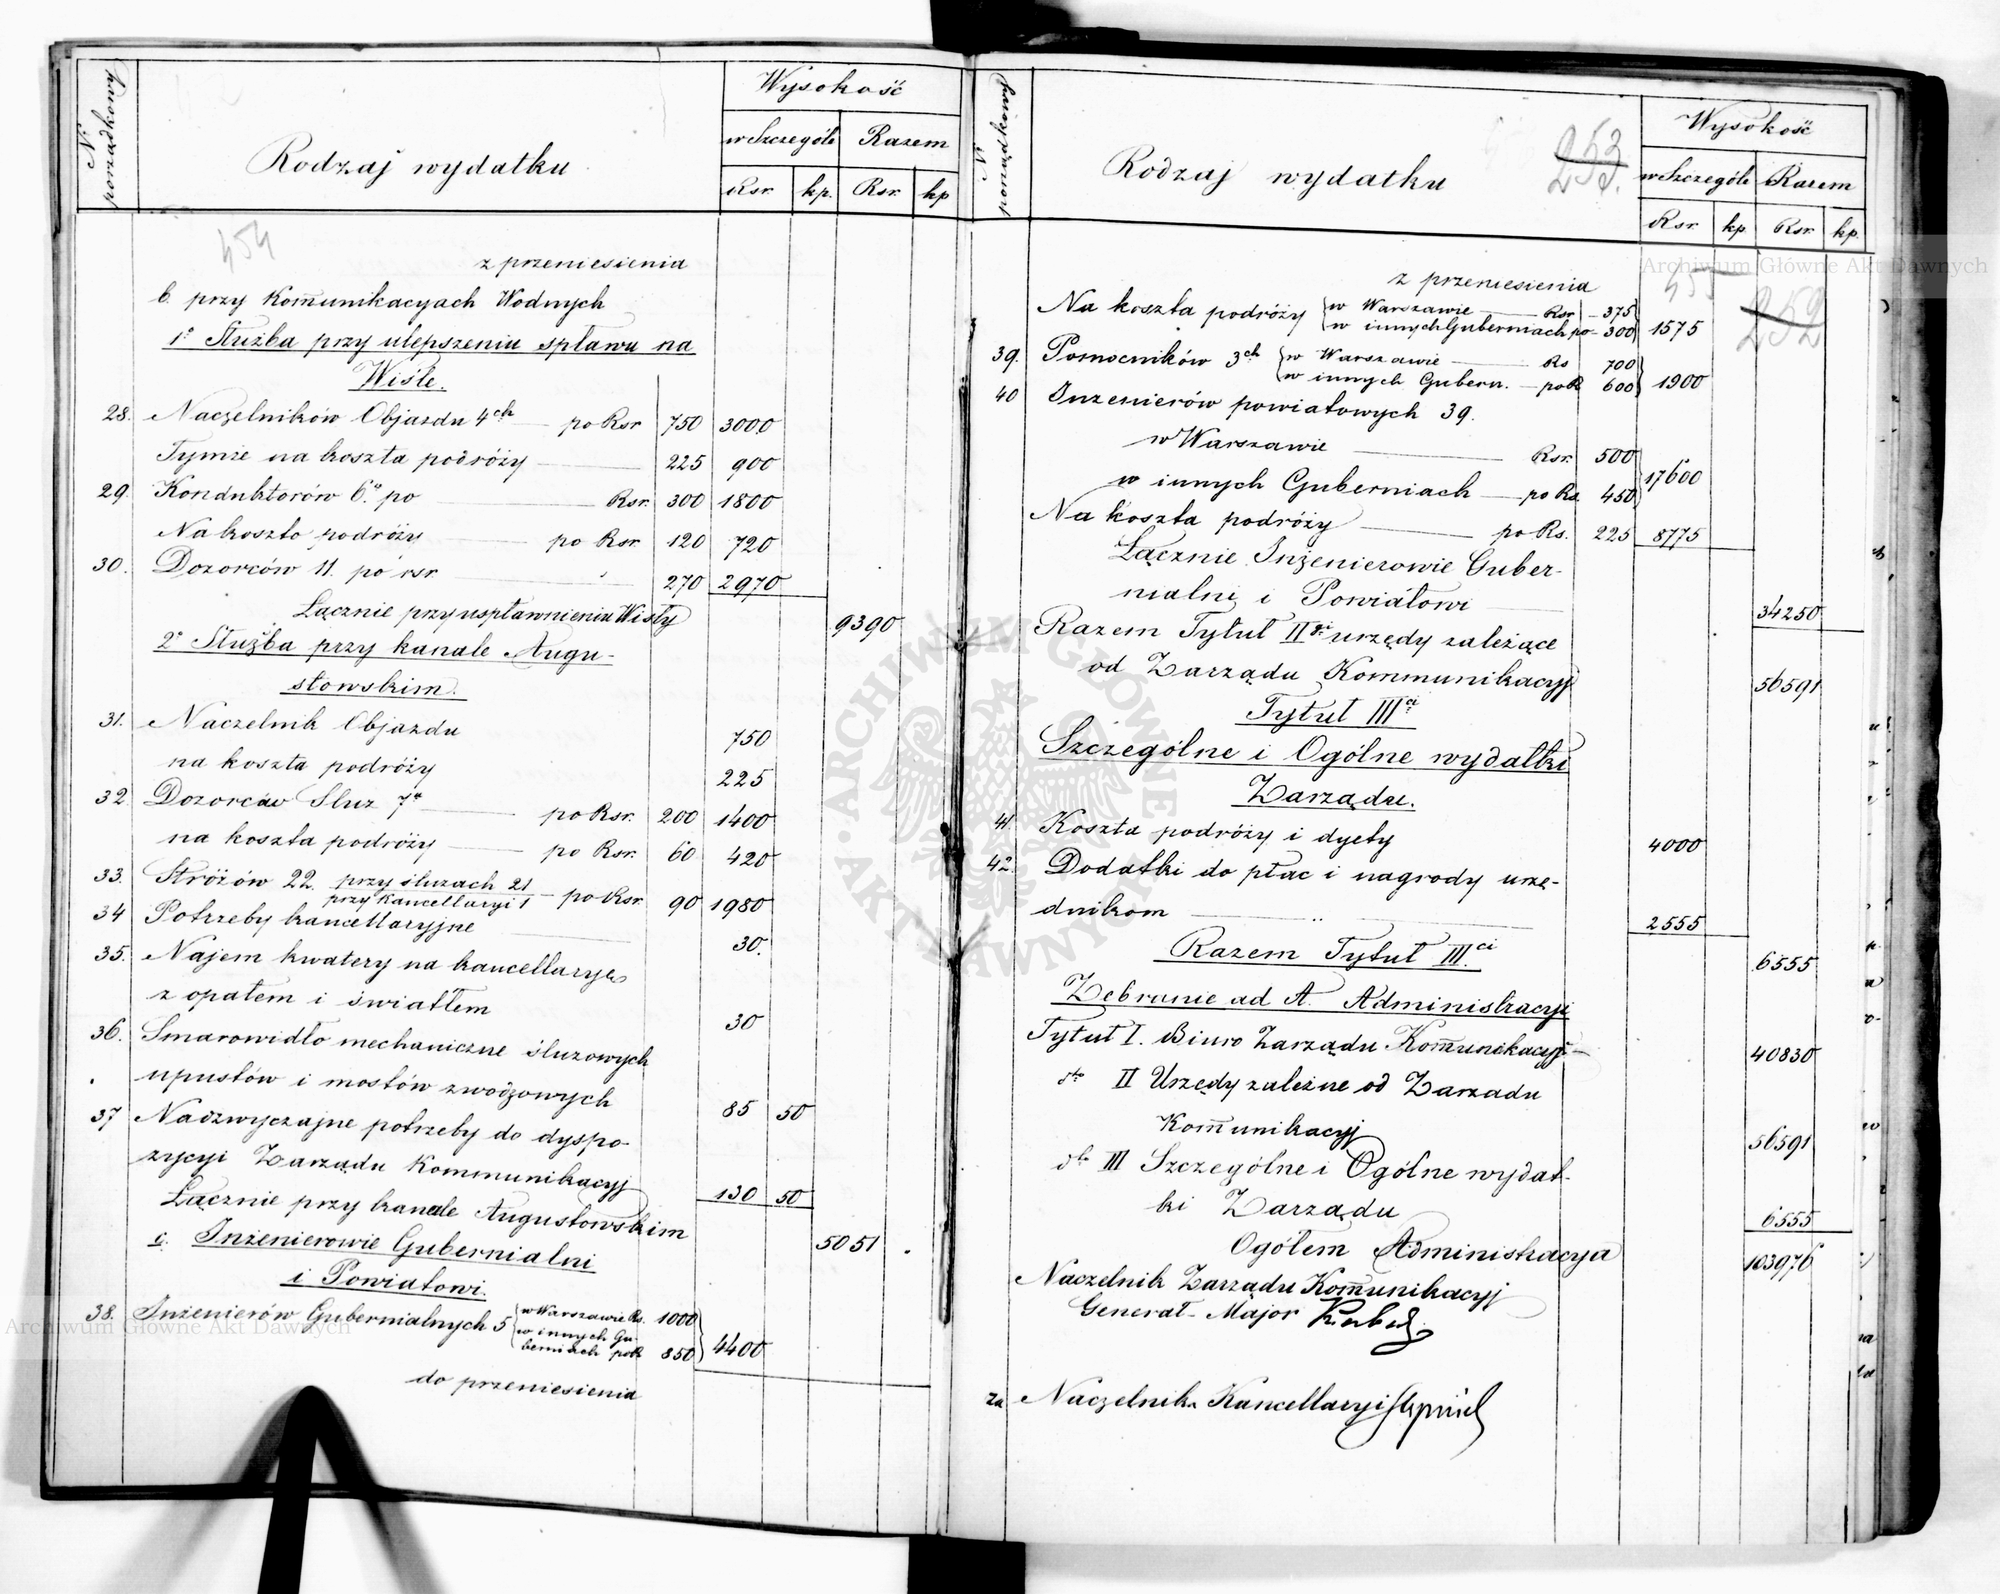 N. porządkowy
Rodzaj wydatku
Wysokość
w Szczególe Razem
Rsr. kp. Rsr. kp
454
z przeniesienia
b. przy Kom̄unikacyach Wodnych
1º Służba przy ulepszeniu spławu na
Wiśle.
28. Naczelników Objazdu 4ch po Rsr 750 3000
Tymże na koszta podróży 225 900
29. Konduktorów 6.u po Rsr. 300 1800
Na koszta podróży po Rsr. 120 720
30. Dozorców 11. po rsr. 270 2970
Łącznie przy uspławnieniu Wisły 9390
2º Służba przy kanale Augu-
stowskim.
31. Naczelnik Objazdu 750
na koszta podróży 225
32. Dozorców Śluz 7u po Rsr. 200 1400
na koszta podróży po Rsr. 60 420
33. Stróżów 22. przy śluzach 21 przy Kancellaryi 1 po Rsr. 90 1980
34 Potrzeby kancellaryjne 30.
35. Najem kwatery na kancellaryę
z opałem i światłem 30
36. Smarowidło mechaniczne śluzowych
upustów i mostów zwodzonych 85 50
37 Nadzwyczajne potrzeby do dyspo-
zycyi Zarządu Kommunikacyj 130 50
Łącznie przy kanale Augustowskim 5051 .
c. Inżenierowie Gubernialni
i Powiatowi.
38. Inżenierów Gubernialnych 5 w Warszawie Rs. 1000
w innych Gu-
berniach po R 850 4400
do przeniesienia
N. porządkowy
Rodzaj wydatku
253
253.
Wysokość
w Szczególe Razem
Rsr. kp. Rsr. kp.
Archiwum Główne Akt Dawnych
455
252
z przeniesienia
Na koszta podróży w Warszawie Rsr 375
w innych Guberniach po 300 1575
39. Pomocników 3ch w Warszawie Rs 700
w innych Gubern. po R 600 1900
40 Inżenierów powiatowych 39.
w Warszawie Rsr. 500
w innych Guberniach po Rs. 450 17600
Na koszta podróży po Rs. 225 8775
Łącznie Inżenierowie Guber-
nialni i Powiatowi 34250
Razem Tytuł IIgi urzędy zależące
od Zarządu Kommunikacyj 56591
Tytuł IIIci
Szczególne i Ogólne wydatki
Zarządu.
41. Koszta podróży i dyety 4000
42. Dodatki do płac i nagrody urzę-
dnikom 2555
Razem Tytuł III.ci 6555
Zebranie ad A. Administracyi
Tytuł I. Biuro Zarządu Kom̄unikacyj 40830
dto II Urzędy zależne od Zarządu
Kom̄unikacyj 56591
dto III Szczególne i Ogólne wydat-
ki Zarządu 6555
Ogółem Administracya 103976
Naczelnik Zarządu Kom̄unikacyj
Generał-Major
za Naczelnika Kancellaryi
Archiwum Główne Akt Dawnych
ARCHIWUM GŁÓWNE AKT DAWNYCH